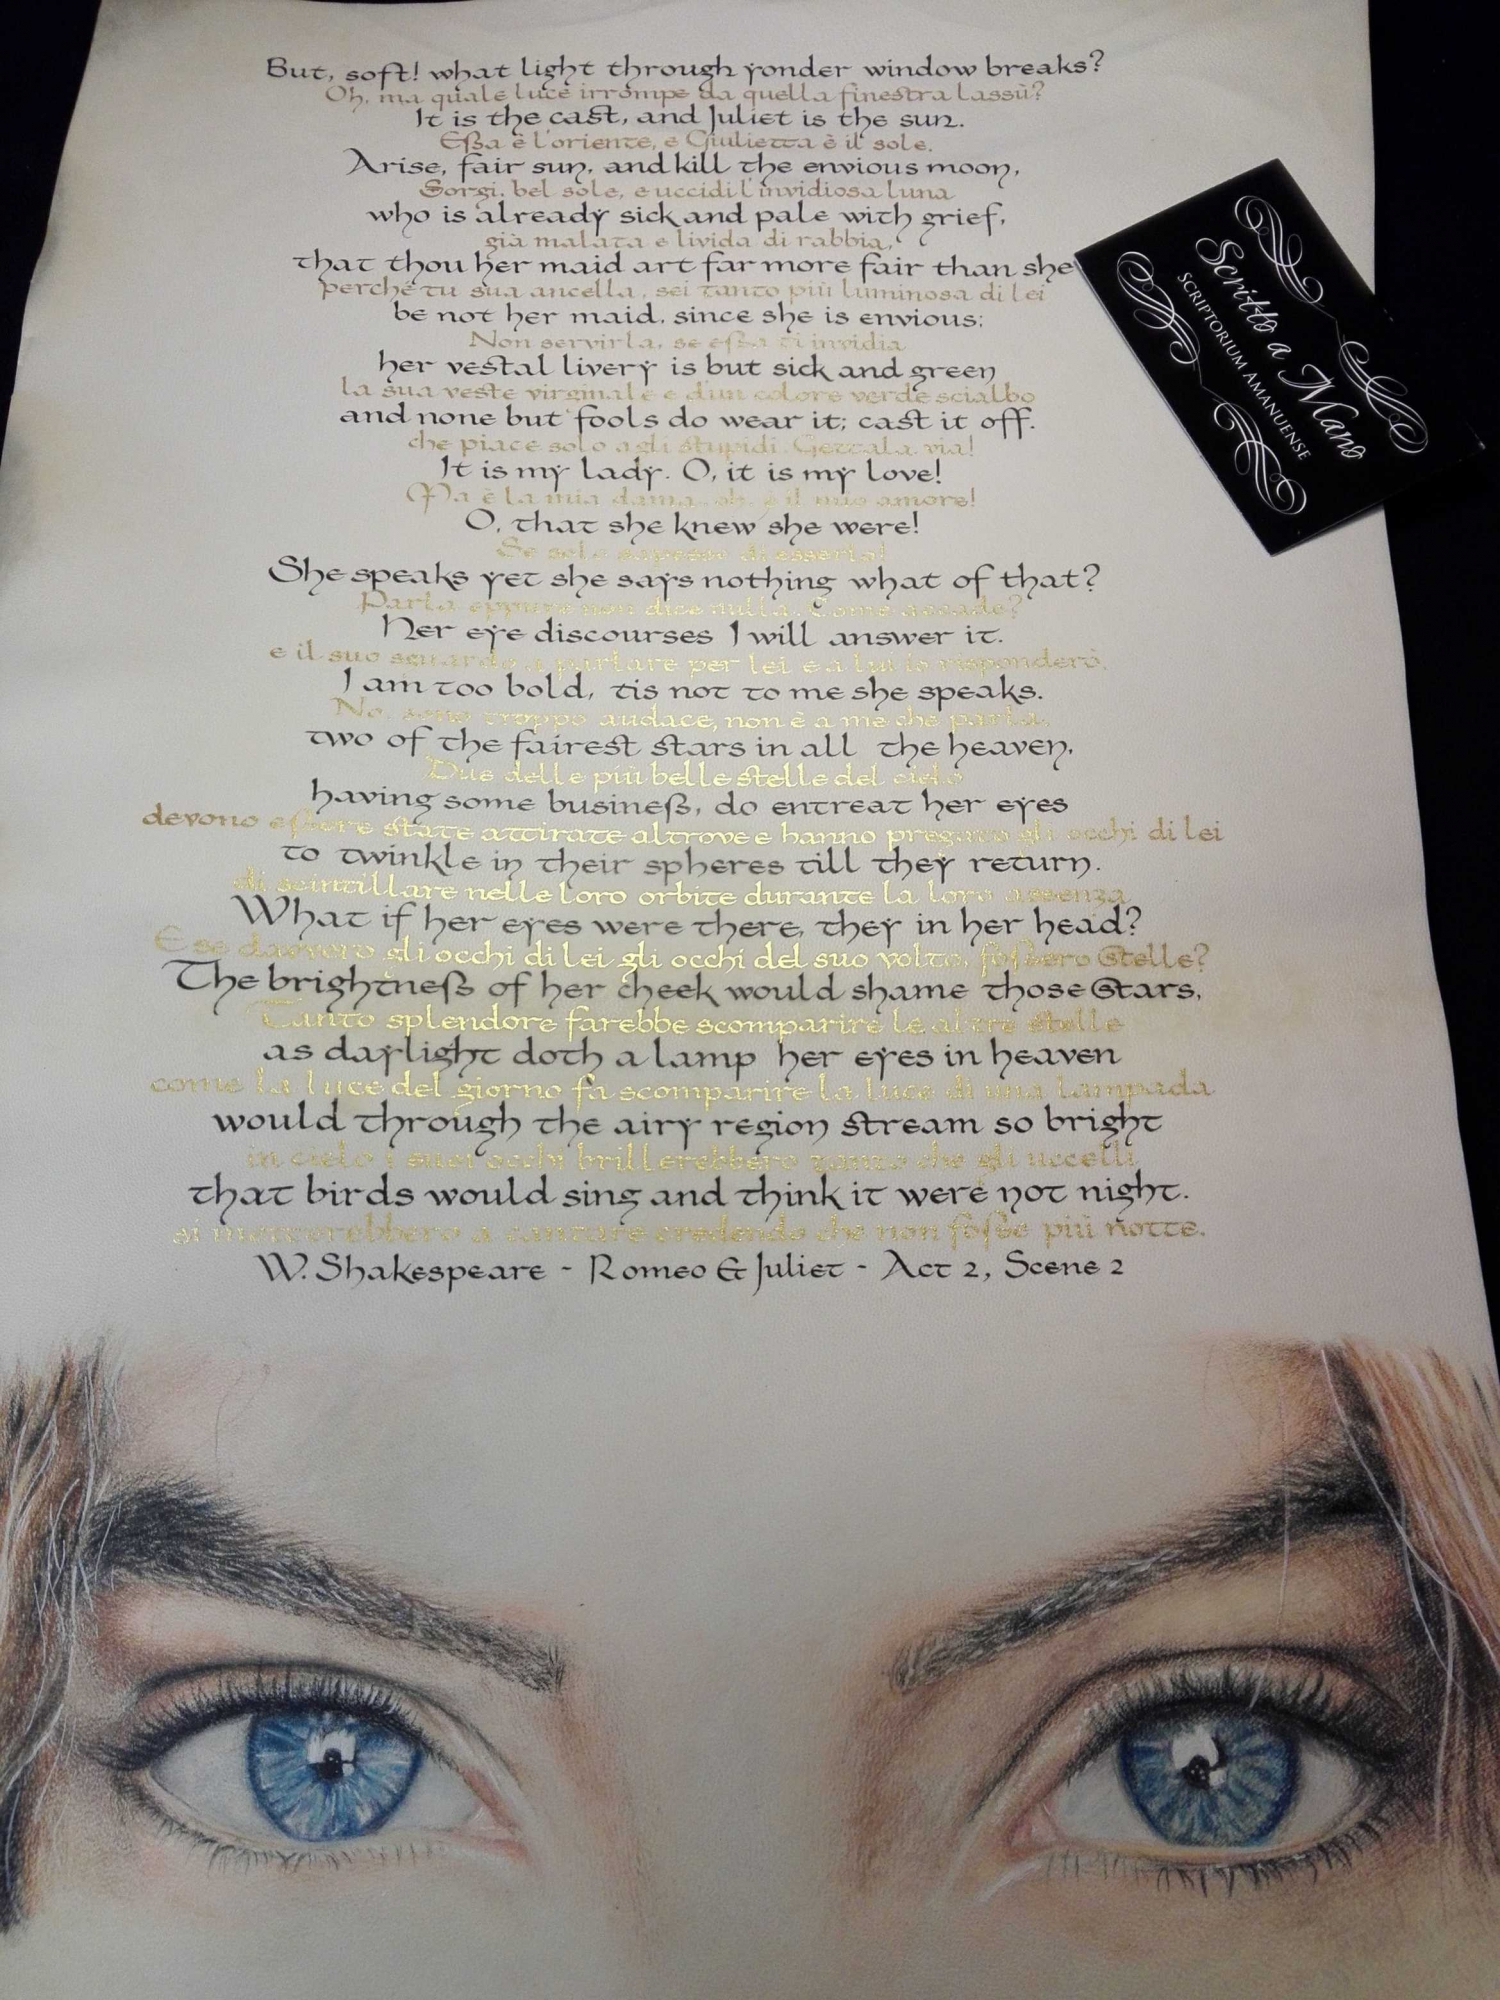 But, soft! what light through yonder window breaks?
Oh, ma quale luce irrompe da quella finestra lassù?
It is the cast, and Juliet is the sun.
Eßa è l'oriente, e Giulietta è il sole.
Arise, fair sun, and kill the envious moon,
Sorgi, bel sole, e uccidi l'invidiosa luna
who is already sick and pale with grief,
già malata e livida di rabbia,
that thou her maid art far more fair than she
perchè tu sua ancella, sei tanto più luminosa di lei
be not her maid, since she is envious;
Non servirla, se eßa ti invidia
her vestal livery is but sick and green
la sua veste virginale e d'un colore verde scialbo
and none but fools do wear it; cast it off.
che piace solo agli stupidi. Gettala via!
It is my lady. O, it is my love!
Ma è la mia dama, oh, è il mio amore!
O, that she knew she were!
Se solo sapesse di esserlo!
She speaks yet she says nothing what of that?
Parla eppure non dice nulla. Come accade?
Her eye discourses I will answer it.
e il suo sguardo a parlare per lei e a lui io risponderò.
I am too bold, tis not to me she speaks.
No, sono troppo audace, non è a me che parla.
two of the fairest stars in all the heaven,
Due delle più belle stelle del cielo
having some busineß, do entreat her eyes
devono eßere state attirate altrove e hanno pregato gli occhi di lei
to twinkle in their spheres till they return.
di scintillare nelle loro orbite durante la loro assenza
What if her eyes were there, they in her head?
E se davvero gli occhi di lei gli occhi del suo volto, foßero stelle?
The brightneß of her cheek would shame those stars,
Tanto splendore farebbe scomparire le altre stelle
as daylight doth a lamp her eyes in heaven
come la luce del giorno fa scomparire la luce di una lampada
would through the airy region stream so bright
in cielo i suoi occhi brillerebbero tanto che gli uccelli
that birds would sing and think it were not night.
si metterebbero a cantare credendo che non foße più notte.
W. Shakespeare - Romeo & Juliet - Act 2, Scene 2
Scritto a Mano
SCRIPTORIUM AMANUENSE